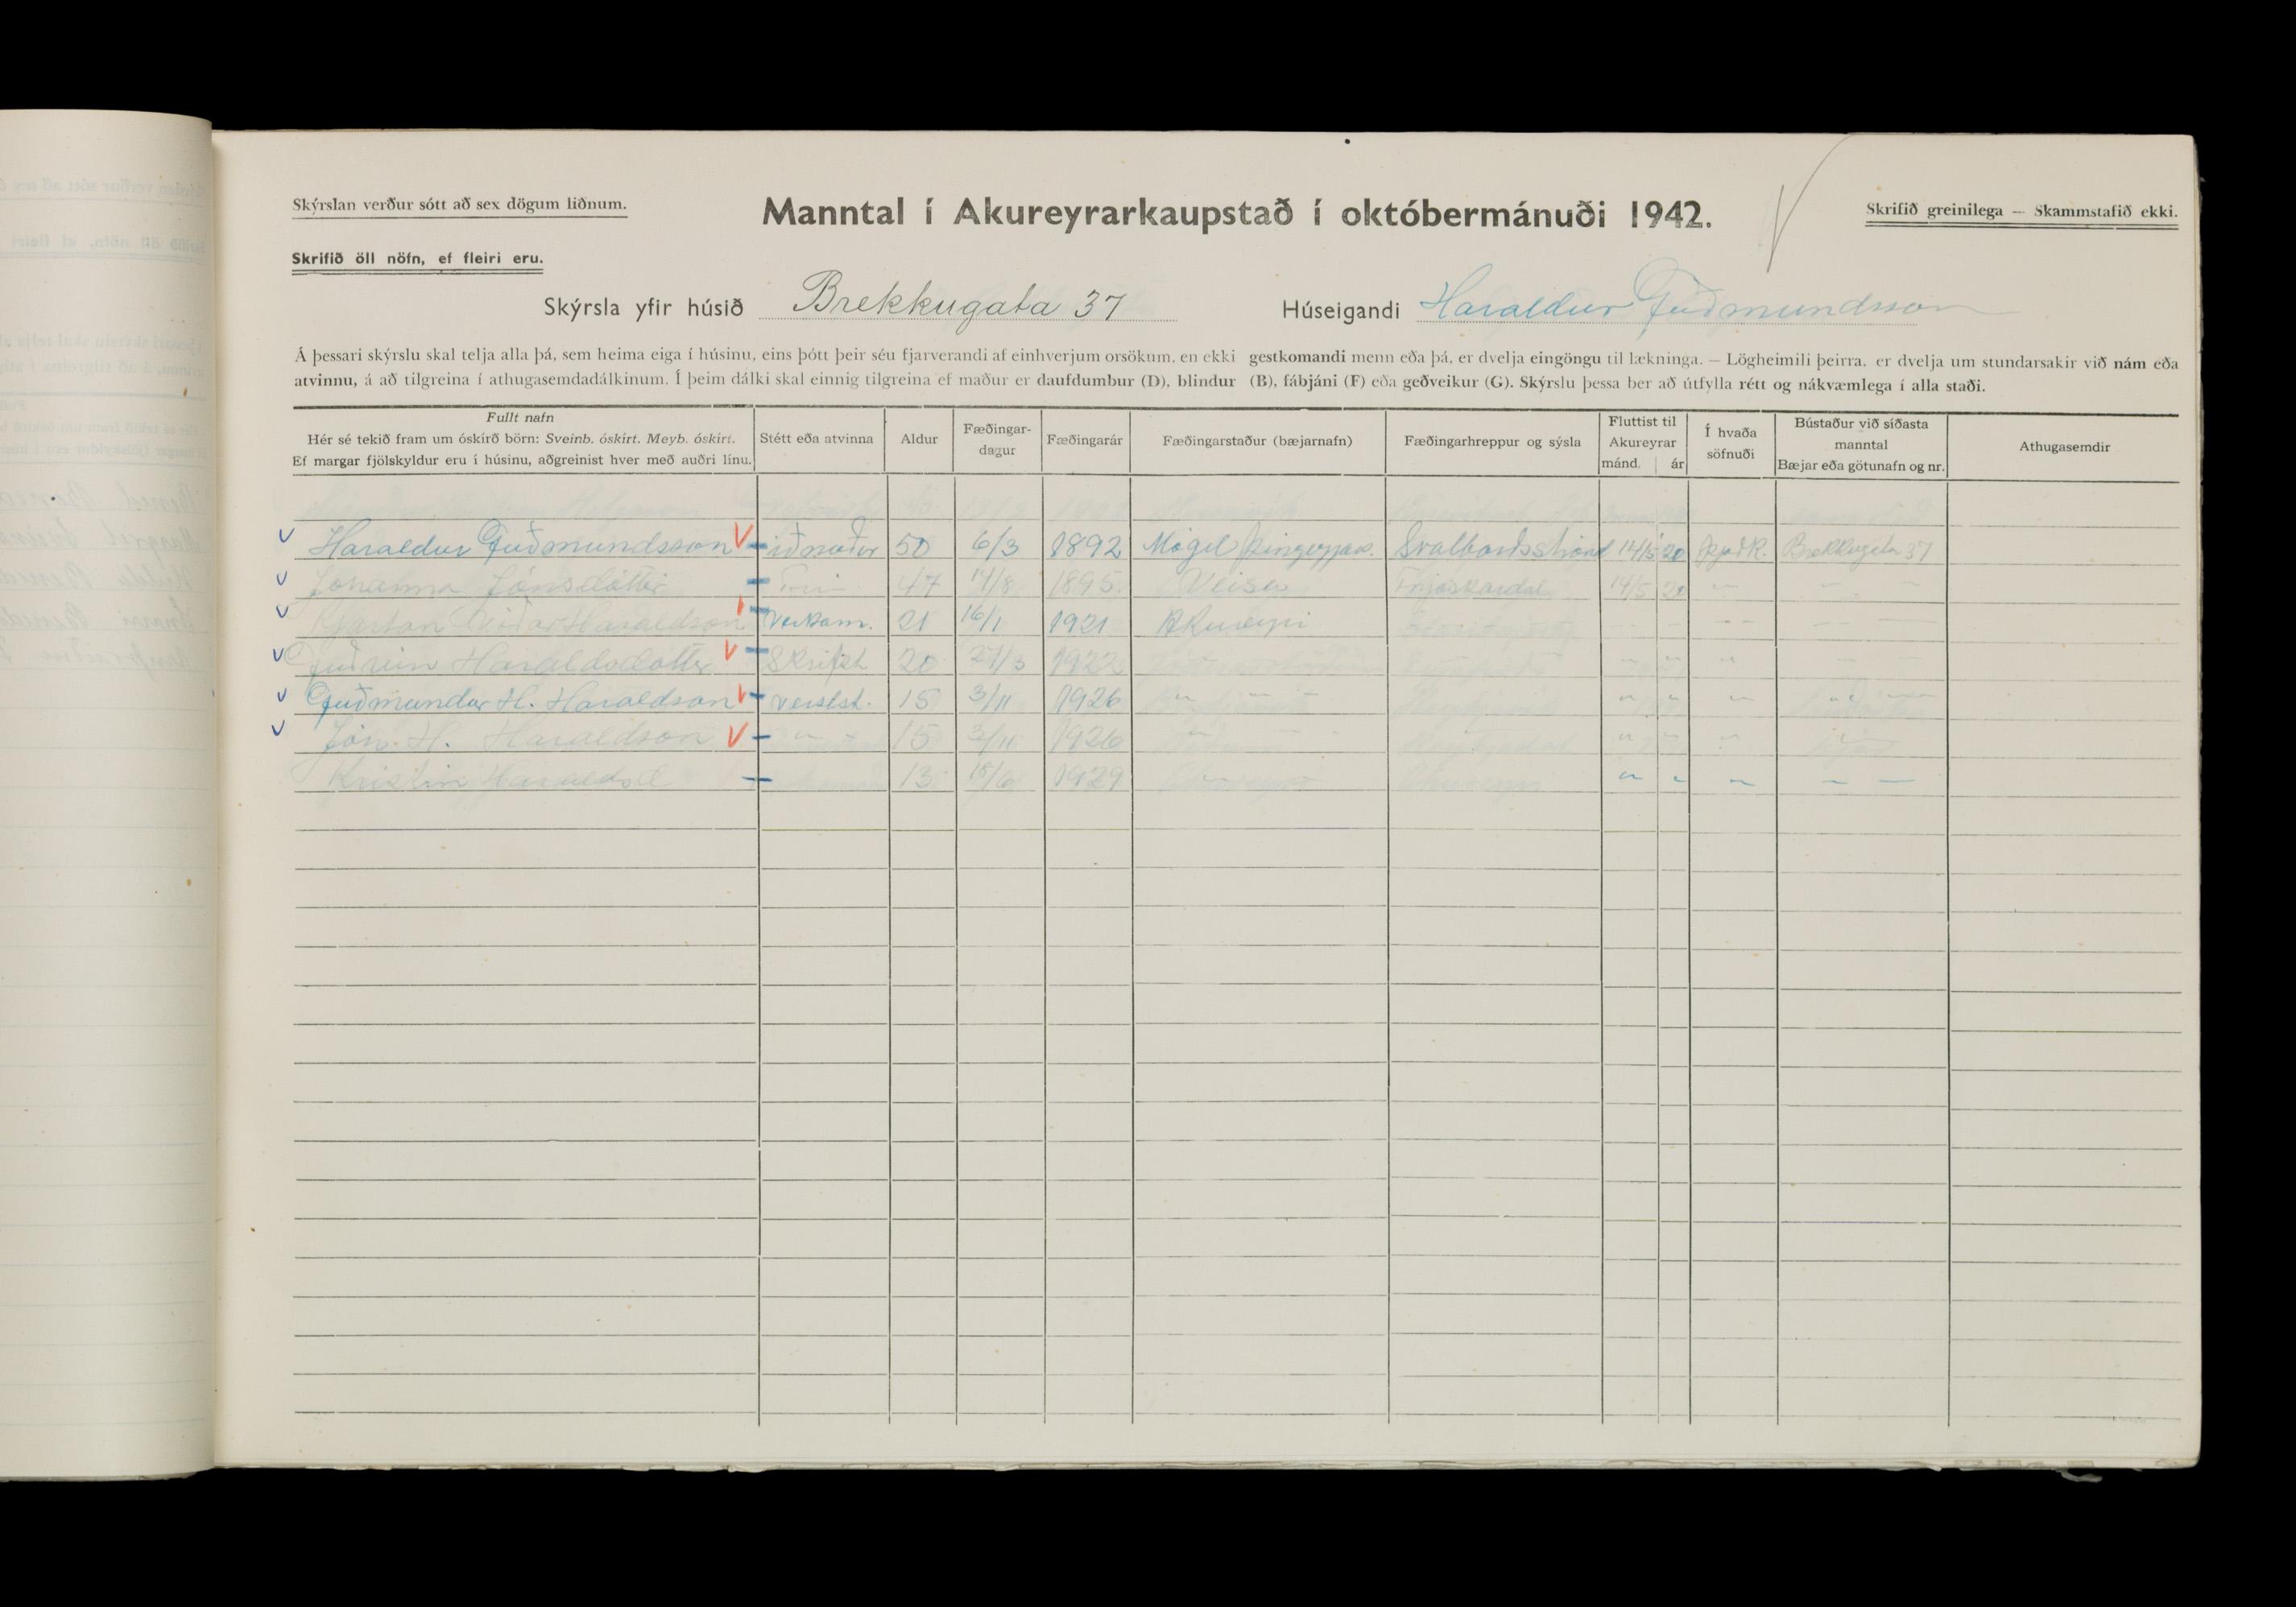 Skýrslan verður sótt að sex dögum liðnum.
Manntal í Akureyrarkaupstað í októbermánuði 1942.
Skrifið greinilega — Skammstafið ekki.
Skrifið öll nöfn, ef fleiri eru.
Skýrsla yfir húsið Brekkugata 37 Húseigandi Haraldur Guðmundsson
Á þessari skýrslu skal telja alla þá, sem heima eiga í húsinu, eins þótt þeir séu fjarverandi af einhverjum orsökum, en ekki gestkomandi menn eða þá, er dvelja eingöngu til lækninga. — Lögheimili þeirra, er dvelja um stundarsakir við nám eða
atvinnu, á að tilgreina í athugasemdadálkinum. Í þeim dálki skal einnig tilgreina ef maður er daufdumbur (D), blindur (B), fábjáni (F) eða geðveikur (G). Skýrslu þessa ber að útfylla rétt og nákvæmlega í alla staði.
Fullt nafn
Hér sé tekið fram um óskírð börn: Sveinb. óskírt. Meyb. óskírt.
Ef margar fjölskyldur eru í húsinu, aðgreinist hver með auðri línu.
Stétt eða atvinna
Aldur
Fæðingar-
dagur
Fæðingarár
Fæðingarstaður (bæjarnafn)
Fæðingarhreppur og sýsla
Fluttist til
Akureyrar
mánd. ár
Í hvaða
söfnuði
Bústaður við síðasta
manntal
Bæjar eða götunafn og nr.
Athugasemdir
Haraldur Guðmundsson 50 6/3 1892 Mógil Svalbarðsströnd 14/5 20 Þjóðk. Brekkugata 37
Jóhanna Jónsdóttir Frú 47 14/8 1895 Veisu Fnjóskadal 14/5 20 — — —
Kjartan Haraldson Verksm. 21 16/1 1921 Akureyri
Guðrún Haraldsdóttir Skrifst. 20 27/3 1922
Guðmundur H. Haraldson 15 3/11 1926
Jón H. Haraldson 15 3/11 1926
Kristín Haraldsd 13 1929